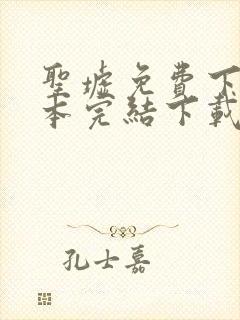 聖墟免費下
本完結下載
孔士嘉